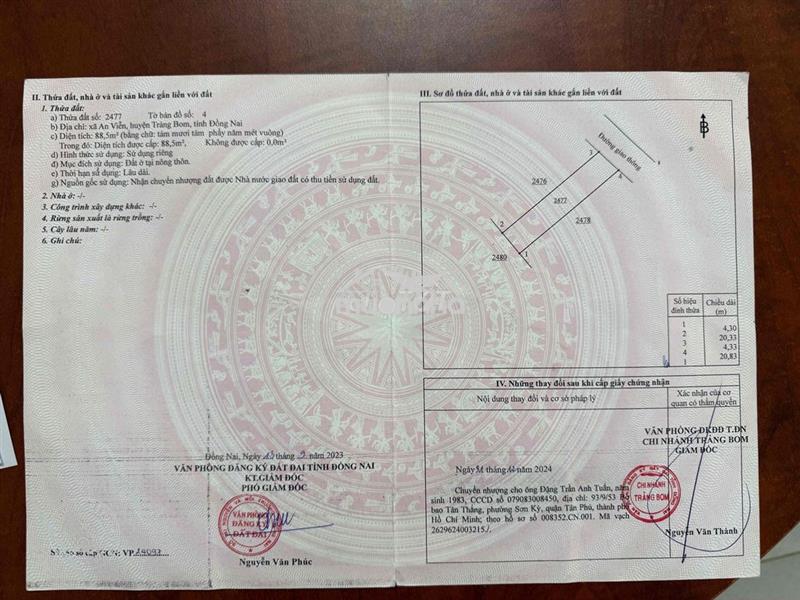 II. Thửa đất, nhà ở và tài sản khác gắn liền với đất
1. Thửa đất:
a) Thửa đất số: 2477 Tờ bản đồ số: 4
b) Địa chỉ: xã An Viễn, huyện Trảng Bom, tỉnh Đồng Nai
c) Diện tích: 88,5m² (bằng chữ: tám mươi tám phẩy năm mét vuông)
Trong đó: Diện tích được cấp: 88,5m². Không được cấp: 0,0m²
d) Hình thức sử dụng: Sử dụng riêng
đ) Mục đích sử dụng: Đất ở tại nông thôn.
e) Thời hạn sử dụng: Lâu dài.
g) Nguồn gốc sử dụng: Nhận chuyển nhượng đất được Nhà nước giao đất có thu tiền sử dụng đất.
2. Nhà ở: -/-
3. Công trình xây dựng khác: -/-
4. Rừng sản xuất là rừng trồng: -/-
5. Cây lâu năm: -/-
6. Ghi chú:
Đồng Nai, Ngày tháng 9 năm 2023
VĂN PHÒNG ĐĂNG KÝ ĐẤT ĐAI TỈNH ĐỒNG NAI
KT.GIÁM ĐỐC
PHÓ GIÁM ĐỐC
VĂN PHÒNG
ĐĂNG KÝ
ĐẤT ĐAI
Nguyễn Văn Phúc
Số vào sổ cấp GCN: VP
III. Sơ đồ thửa đất, nhà ở và tài sản khác gắn liền với đất
B
Đường giao thông
3
4
2476
2477
2478
2
1
2480
Số hiệu đỉnh thửa Chiều dài (m)
1
4,30
2
20,33
3
4,33
4
20,83
1
IV. Những thay đổi sau khi cấp giấy chứng nhận
Nội dung thay đổi và cơ sở pháp lý
Xác nhận của cơ
quan có thẩm quyền
VĂN PHÒNG ĐKĐĐ T.ĐN
CHI NHÁNH TRẢNG BOM
GIÁM ĐỐC
Ngày tháng năm 2024
Chuyển nhượng cho ông Đặng Trần Anh Tuấn, năm
sinh 1983, CCCD số 079083008450, địa chỉ: 93/9/53 Bờ
bao Tân Thắng, phường Sơn Kỳ, quận Tân Phú, thành phố
Hồ Chí Minh; theo hồ sơ số 008352.CN.001. Mã vạch
2629624003215./.
CHI NHÁNH
TRẢNG BOM
Nguyễn Văn Thành